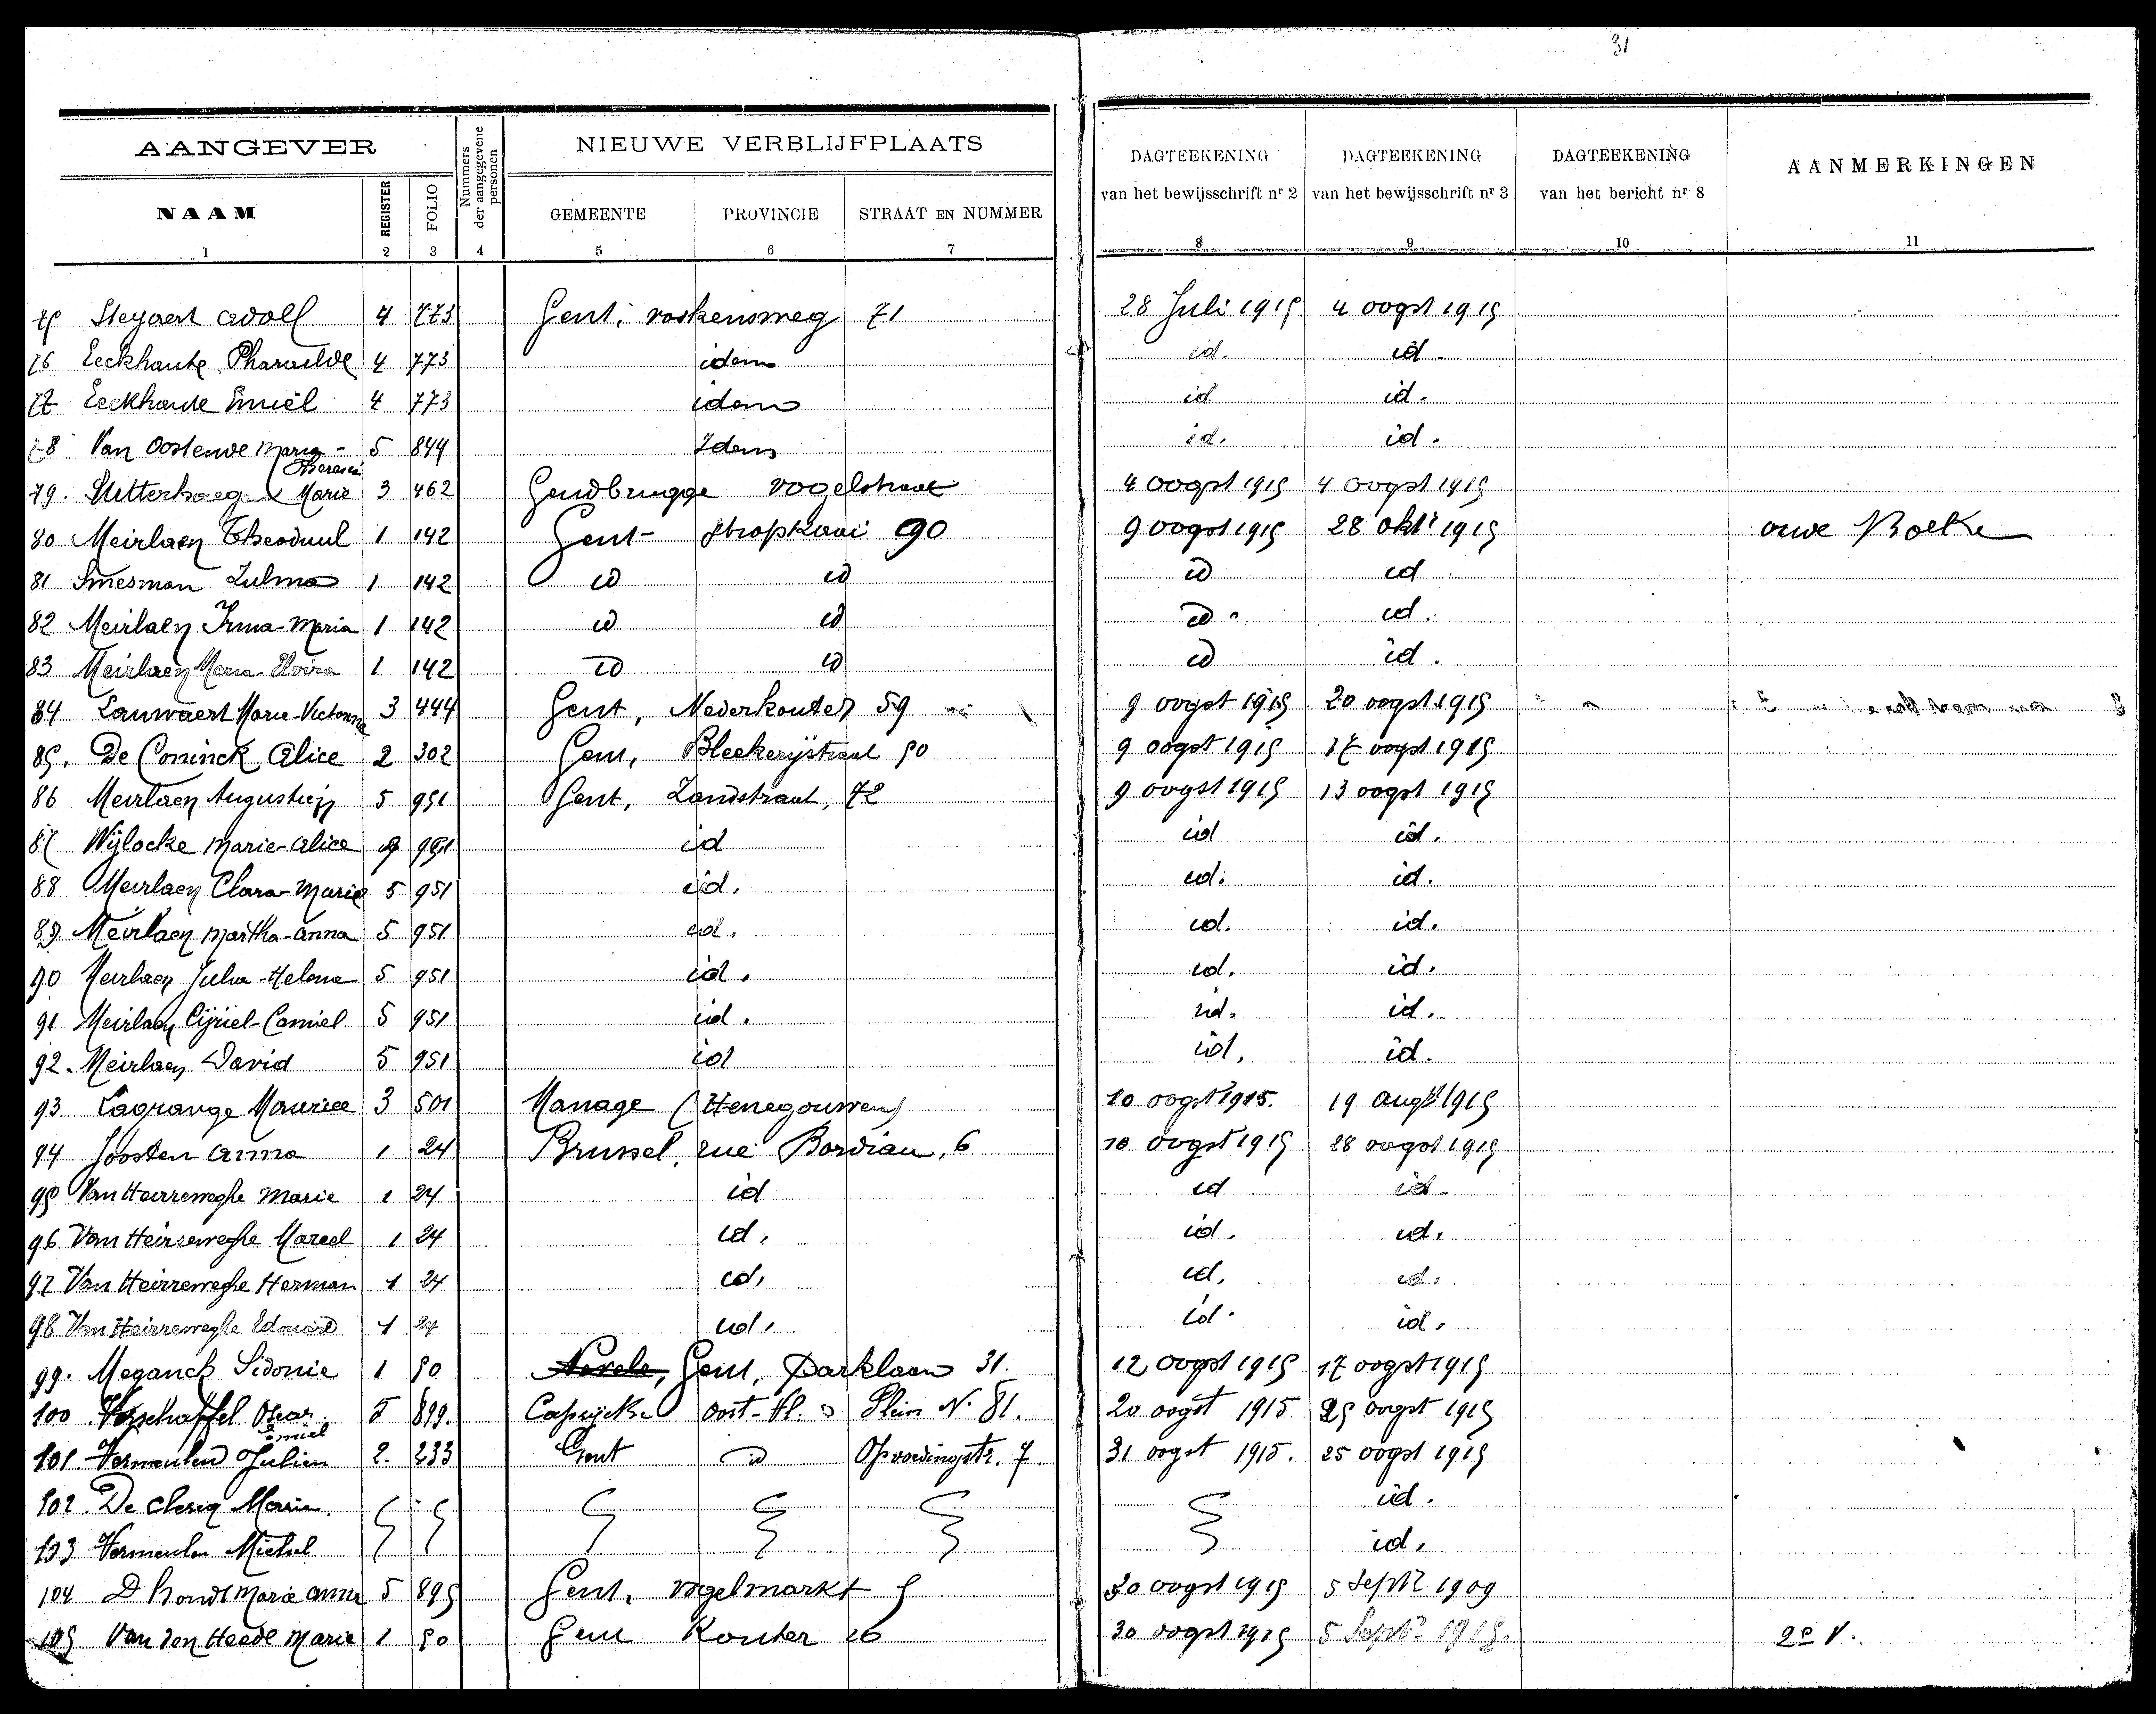 31
AANGEVER
Nummers der aangegevene personen
NIEUWE VERBLIJFPLAATS
DAGTEEKENING van het bewijsschrift nr 2
DAGTEEKENING van het bewijsschrift nr 3
DAGTEEKENING van het bericht nr 8
AANMERKINGEN
NAAM REGISTER FOLIO GEMEENTE PROVINCIE STRAAT EN NUMMER
1 2 3 4 5 6 7 8 9 10 11
75 Steyaert Adolf 4 773 Gent, roskensweg 71 28 Juli 1915 4 oogst 1915
76 Eeckhaute Pharaïlde 4 773 idem id. id.
77 Eeckhaute Emiel 4 773 idem id id.
78 Van Oostende Maria- 5 844 Idem id. id.
Theresia
79. Marie 3 462 Gendbrugge vogelstraat 4 oogst 1915 4 oogst 1915
80 Meirlaen Theoduul 1 142 Gent- stropkaai 90 9 oogst 1915 28 okt 1915
81 Smesman Zulma 1 142 id id id id
82 Meirlaen Irma-Maria 1 142 id id id id.
83 Meirlaen Maria-Elvira 1 142 id id id id.
84 Lauwaert Marie-Victorine 3 444 Gent, Nederkouter 59 9 oogst 1915 20 oogst 1915
85. De Coninck Alice 2 302 Gent, Bleekerijstraat 50 9 oogst 1915 17 oogst 1915
86 Meirlaen Augustijn 5 951 Gent, Zandstraat, 72 9 oogst 1915 13 oogst 1915
87 Wijlocke Marie-Alice 951 id id id.
88 Meirlaen Clara-Marie 5 951 id. id. id.
89 Meirlaen Martha-Anna 5 951 id. id. id.
90 Meirlaen Julia-Helena 5 951 id. id. id.
91 Meirlaen Cijriel-Camiel 5 951 id. id. id.
92. Meirlaen David 5 951 id id. id.
93 Lagrange Maurice 3 501 Manage (Henegouwen) 10 oogst 1915. 19 augst 1915
94 Joosten Anna 1 24 Brussel, rue Bordiau, 6 10 oogst 1915 28 oogst 1915
95 Van Heirreweghe Marie 1 24 id id id.
96 Van Heirreweghe Marcel 1 24 id. id. id.
97 Van Heirreweghe Herman 1 24 id. id. id.
98 Van Heirreweghe Edouard 1 24 id. id. id.
99. Meganck Sidonie 1 50 Nevele, Gent, Parklaan 31. 12 oogst 1915 17 oogst 1915
100 Verschaffel Oscar 5 899. Caprijcke Oost-Vl. Plein N. 81. 20 oogst 1915. 25 oogst 1915
Emiel
101. Vermeulen Julien 2. 233 Gent id Opvoedingstr. 7 31 oogst 1915. 25 oogst 1915
102. De Clercq Marie. id.
103 Vermeulen Michel id.
104 D'hondt Marie Anna 5 895 Gent, vogelmarkt 5 30 oogst 1915 5 Sept 1909
105 Van den Heede Marie 1 50 Gent Kouter 26 30 oogst 1915 5 Sept 1915. 2e V.